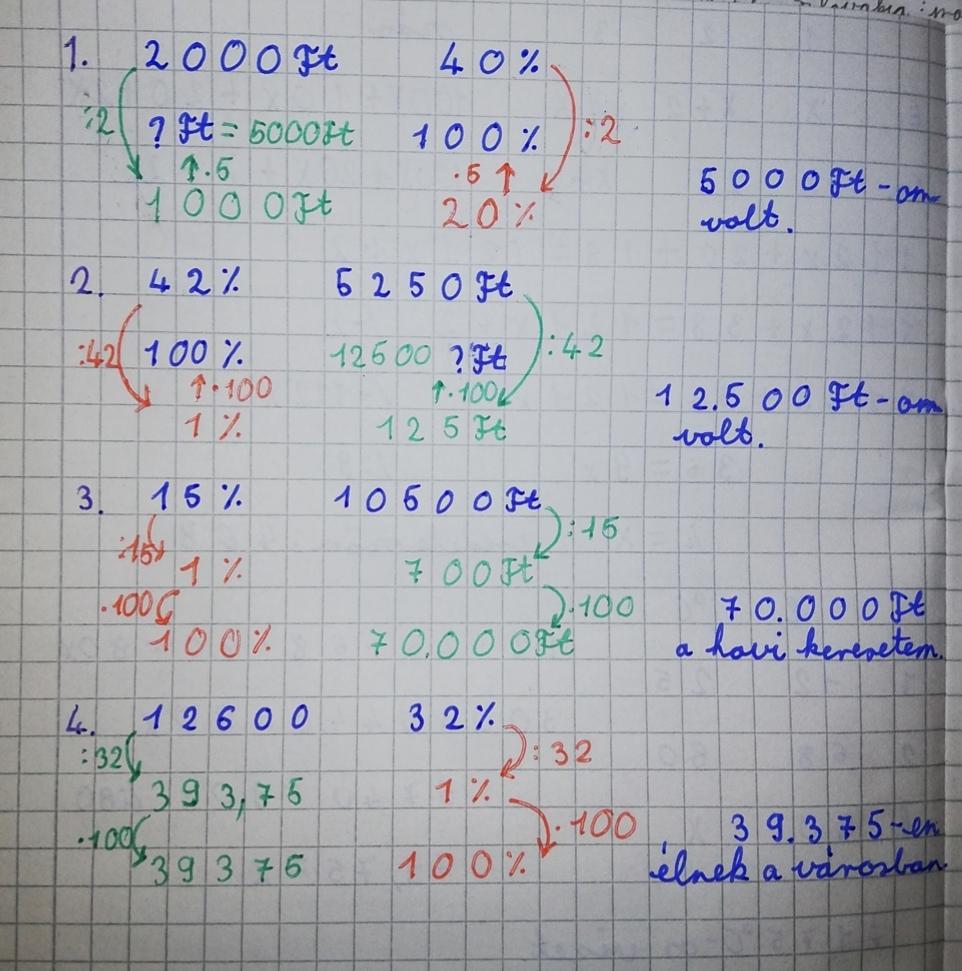 1. 2000Ft 40%
:2 ? Ft = 5000Ft 100% :2
↑·5 ·5↑
1000Ft 20%
5000Ft-om
volt.
2. 42% 5250Ft
:42 100% 12500 ?Ft :42
↑·100 ↑·100
1% 125Ft
12.500Ft-om
volt.
3. 15% 10500Ft
:15 :15
1% 700Ft
·100 ·100
100% 70.000Ft
70.000Ft
a havi keresetem.
4. 12600 32%
:32 :32
393,75 1%
·100 ·100
39375 100%
39.375-en
élnek a városban.